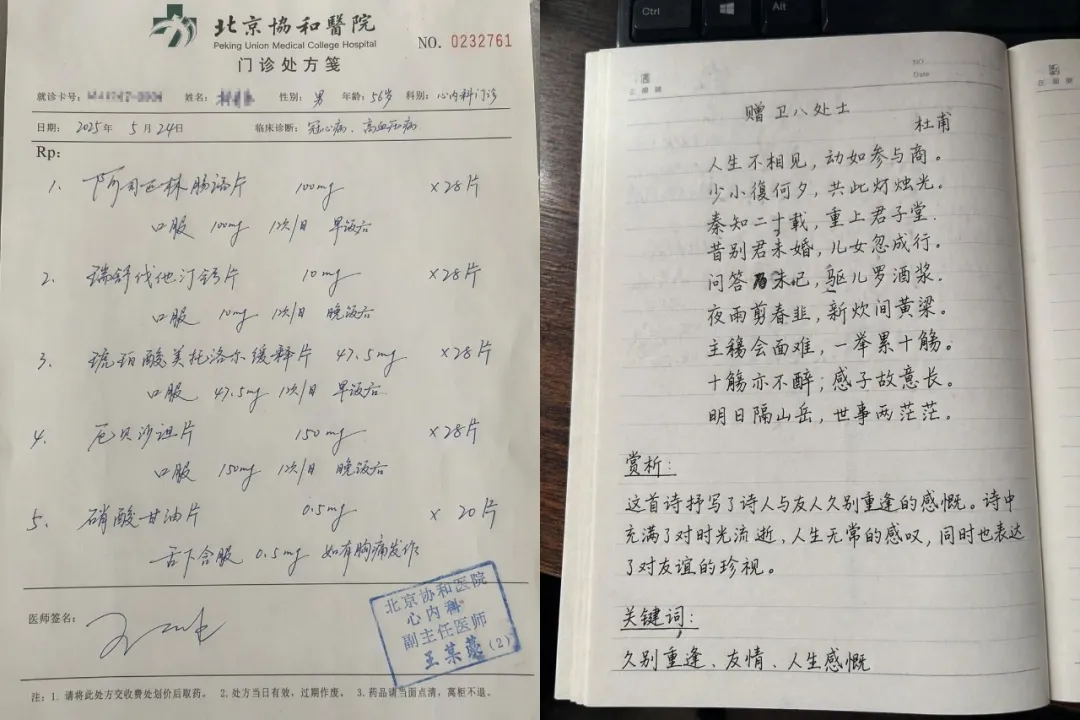 北京協和醫院
Peking Union Medical College Hospital
NO. 0232761
门诊处方笺
就诊卡号: 姓名: 性别: 男 年龄: 56岁 科别: 心内科门诊
日期: 2025年 5月24日 临床诊断: 冠心病、高血压病
Rp:
1. 阿司匹林肠溶片 100mg ×28片
口服 100mg 1次/日 早饭后
2. 瑞舒伐他汀钙片 10mg ×28片
口服 10mg 1次/日 晚饭后
3. 琥珀酸美托洛尔缓释片 47.5mg ×28片
口服 47.5mg 1次/日 早饭后
4. 厄贝沙坦片 150mg ×28片
口服 150mg 1次/日 晚饭后
5. 硝酸甘油片 0.5mg ×20片
舌下含服 0.5mg 如有胸痛发作
医师签名:
北京协和医院
心内科
副主任医师
王某 (2)
注: 1. 请将此处方交收费处划价后取药。 2. 处方当日有效，过期作废。 3. 药品请当面点清，离柜不退。
Ctrl
Alt
NO
Date
赠卫八处士
杜甫
人生不相见，动如参与商。
少小復何夕，共此灯烛光。
秦知二十载，重上君子堂.
昔别君未婚，儿女忽成行。
问答乃未已，驱儿罗酒浆.
夜雨剪春韭，新炊间黄梁。
主稱会面难，一举累十觞。
十觞亦不醉；感子故意长。
明日隔山岳，世事两茫茫。
赏析:
这首诗抒写了诗人与友人久别重逢的感慨。诗中
充满了对时光流逝、人生无常的感叹，同时也表达
了对友谊的珍视。
关键词:
久别重逢、友情、人生感慨